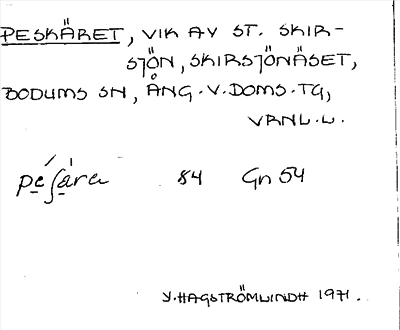 PESKÄRET, VIK AV ST. SKIR-
SJÖN, SKIRSJÖNÄSET,
BODUMS SN, ÅNG. V. DOMS. TG,
VRNL. L.
84 Gn 54
Y. HAGSTRÖMLINDH 1971.